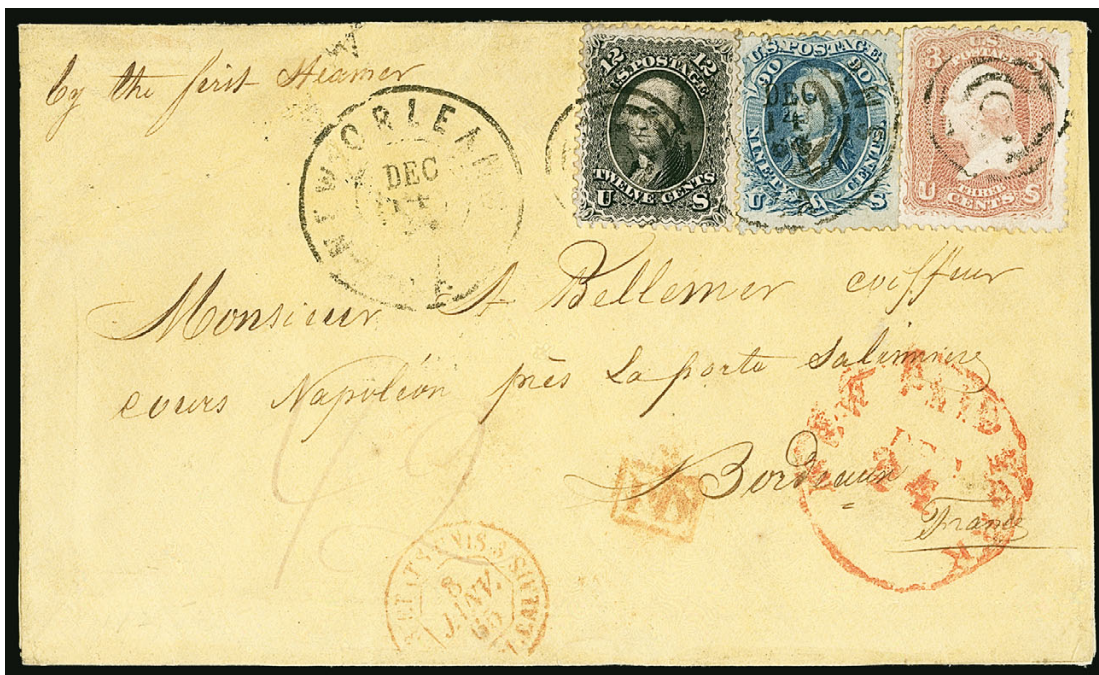 by the first Steamer
NEW ORLEANS
DEC
12 12
U.S. POSTAGE
TWELVE CENTS
U S
U.S. POSTAGE
90 90
DEC
14
NINETY CENTS.
U S
3 3
U.S. POSTAGE
THREE
CENTS
U S
Monsieur A Bellemer coiffeur
cours Napoléon près La porte Salinnière
Bordeaux
France
NEW PAID YORK
24
PD
ETATS UNIS
CALAIS
8
JANV.
65